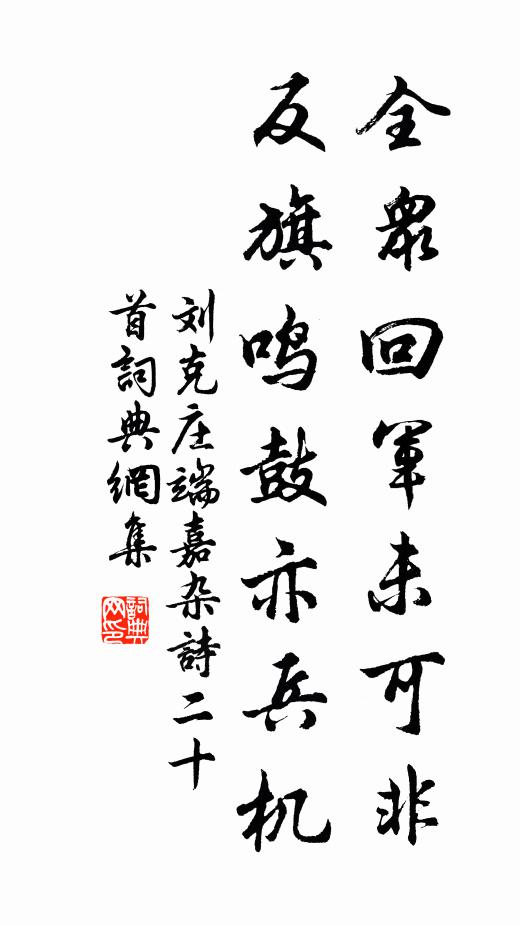 全衆回軍未可非
反旗鸣鼓亦兵机
刘克庄端嘉杂詩二十
首詞典網集
詞典
网印